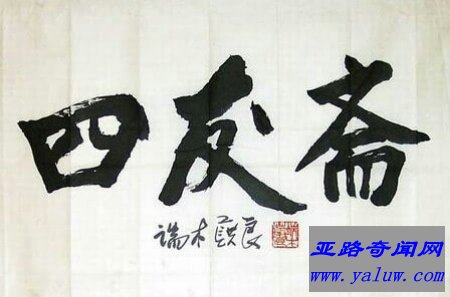 四友斋
端木蕻良
亚路奇闻网
www.yaluw.com